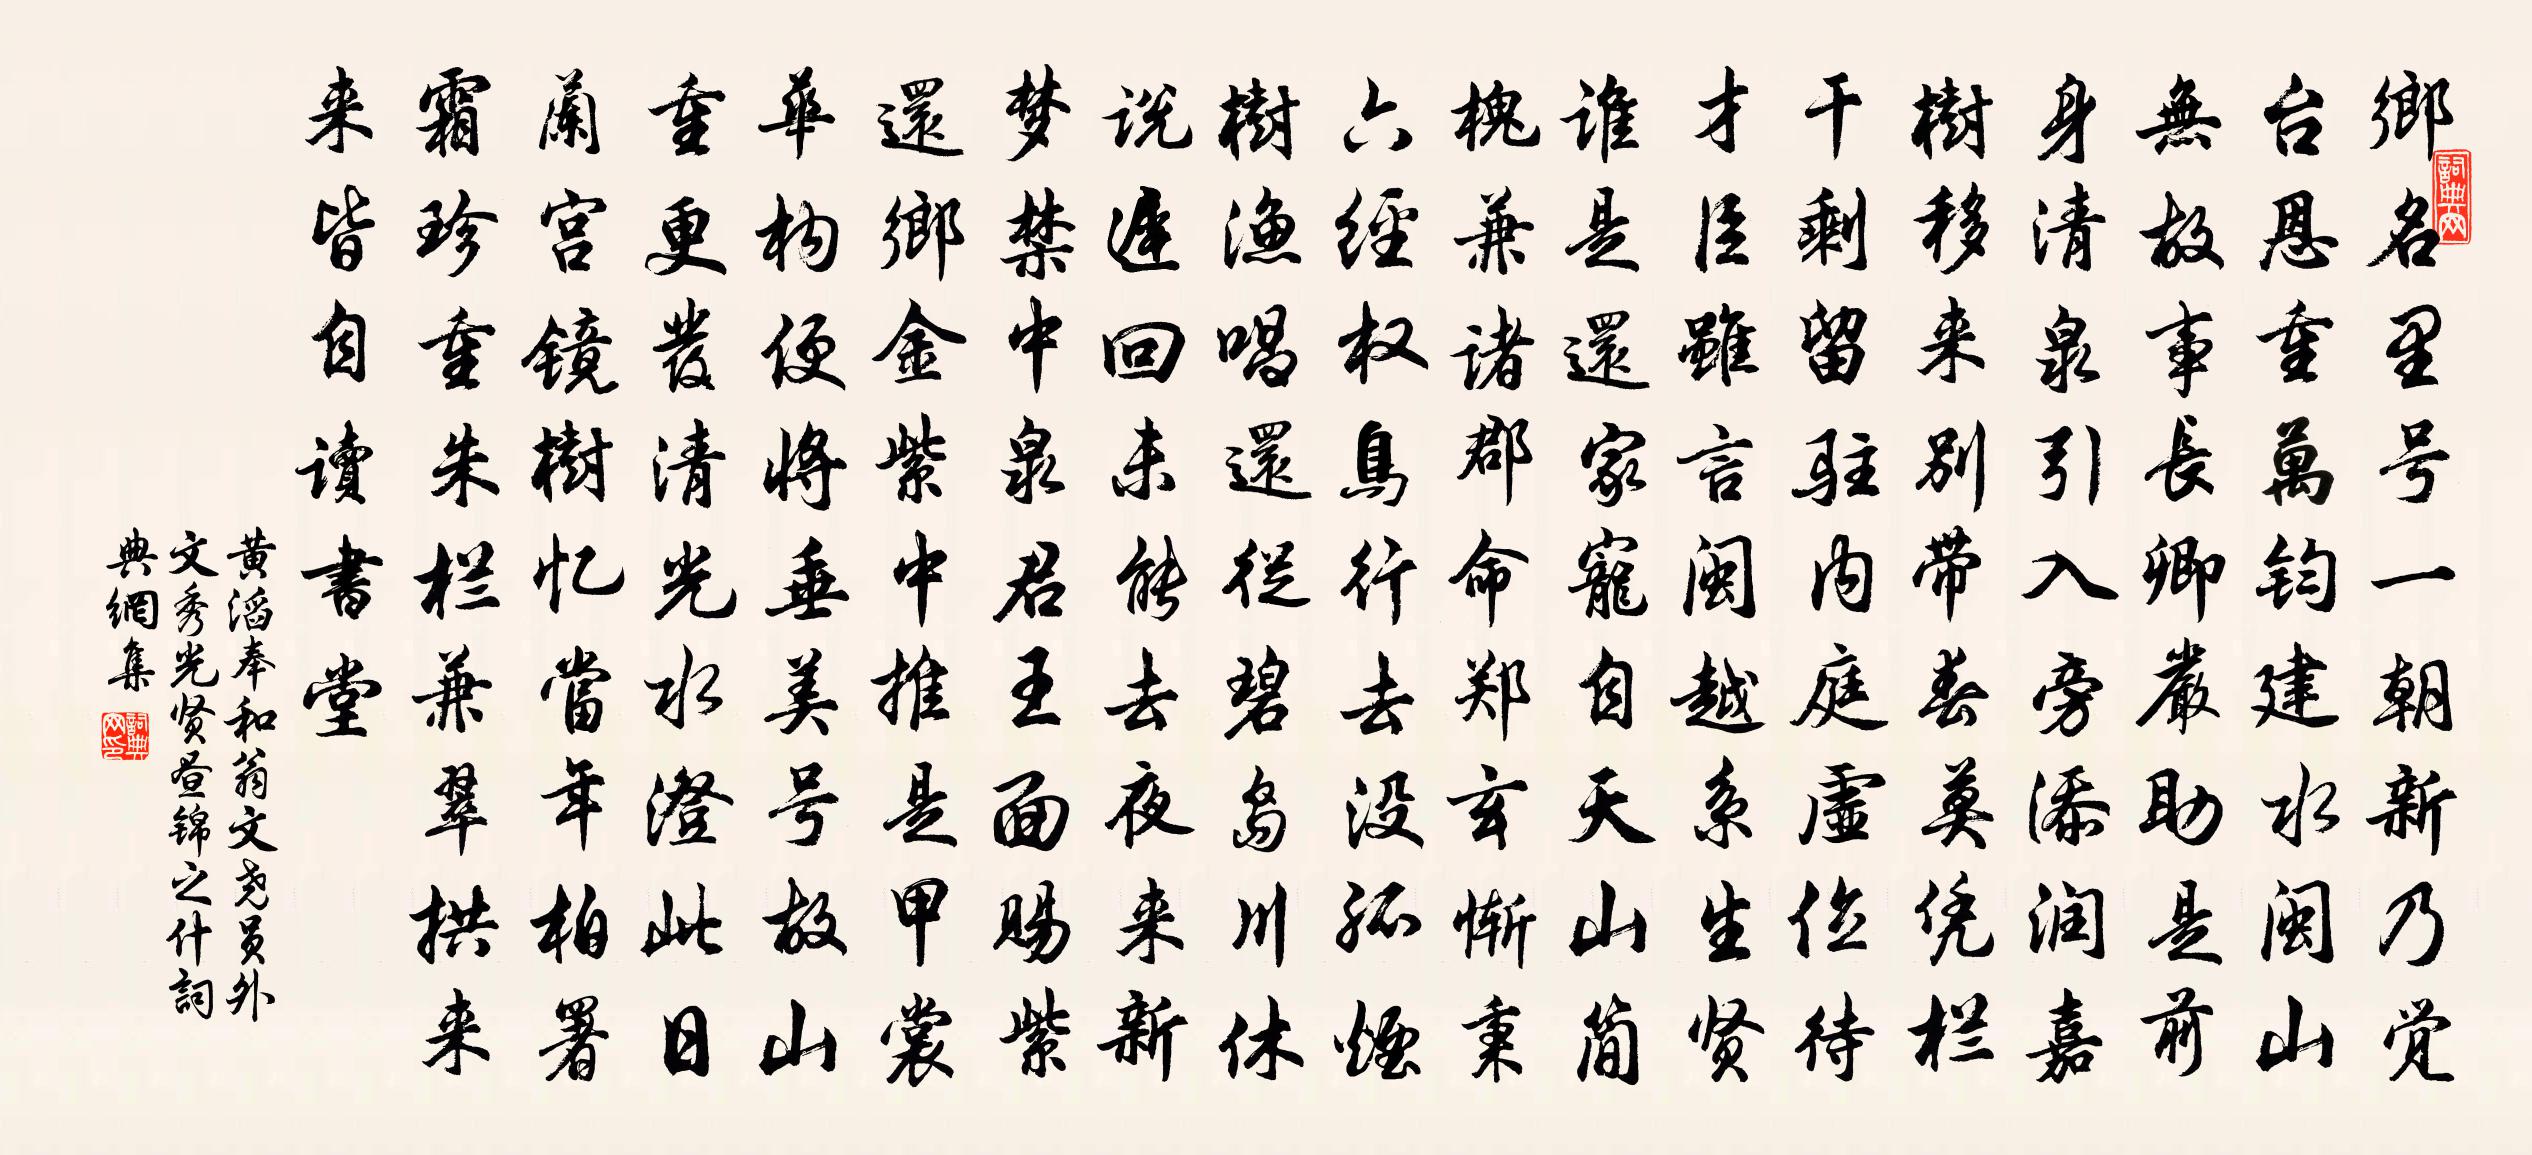 鄉名里号一朝新乃觉
台恩重萬钧建水闽山
無故事長卿嚴助是前
身清泉引入旁添润嘉
樹移来别带春莫凭栏
干剩留駐内庭虚位待
才臣雖言闽越系生贤
谁是還家寵自天山简
槐兼諸郡命郑玄惭秉
六經权鳥行去没孤煙
樹渔唱還従碧岛川休
说遲回未能去夜来新
梦禁中泉君王面赐紫
還鄉金紫中推是甲裳
華构便将垂美号故山
重更發清光水澄此日
蘭宫镜樹忆當年柏署
霜珍重朱栏兼翠拱来
来皆自读書堂
黄滔奉和翁文尧员外
文秀光贤昼锦之什詞
典網集
詞典网
詞典网印